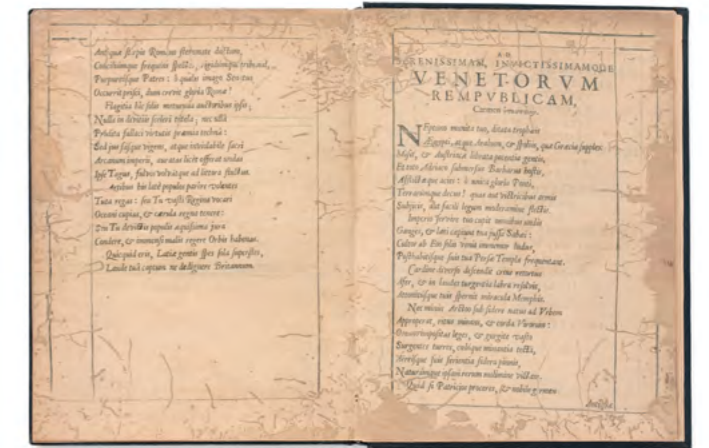 Antiquæ stirpis Romine
Conciliumque frequens
Purpureosque Patres: & qualis imago Senatus
Occurrit prisci, dum crevit gloria Romæ!
Flagitia hîc solio metuenda auctoribus ipso,
Nulla in divitiis sceleri tutela; nec ulla
Perfida fallaci virtutis præmia technâ:
Sed jus fasque vigens, atque inviolabile sacri
Arcanum imperii, aut auas licet offerat undas
Ipse Tagus, fulvos volvatque ad littora fluctus.
Artibus his latè populos parêre volentes
Tuta regas: seu Tu vasti Regina vocari
Oceani capias, & cærula regna tenere:
Seu Tu devictis populis æquissima jura
Condere, & immensi malis regere Orbis habenas.
Quicquid eris, Latiæ gentis spes sola superstes,
Laude tuâ captum ne dedignere Britannum.
AD
SERENISSIMAM, INVICTISSIMAMQUE
VENETORVM
REMPVBLICAM,
Carmen
NEptuni munita tuo, ditata trophæis
Ægypti, atque Arabum, & spoliis, quæ Græcia supplex
Misit, & Austriacæ librata potentia gentis,
Et tuto Adriacu submersus Barbarus hostis,
Afflictæque acies: & unica gloria Ponti,
Terrarumque decus! quas aut victricibus armis
Subjicis, aut facili legum moderamine flectis.
Imperio servire tuo cupit
Ganges, & lati capiunt tua jussa Sabæi:
Cultor ab Eois
Posthabitisque suis tua Persa Templa frequentant.
Cardine diverso descendit crine retortus
Afer, & in laudes turgentia labra resolvit,
Attonitusque tuis spernit miracula Memphis.
Nec minùs Arctoo sub sidere natus ad Urbem
Approperat, ritus mirans, & corda Virorum:
leges, & gurgite vasto
Surgentes turres, cultique minantia tecti,
Aereisque suis ferientia sidera pinnis,
Naturamque operi rerum molimine victam.
Quid si Patricios proceres, & nobile germen